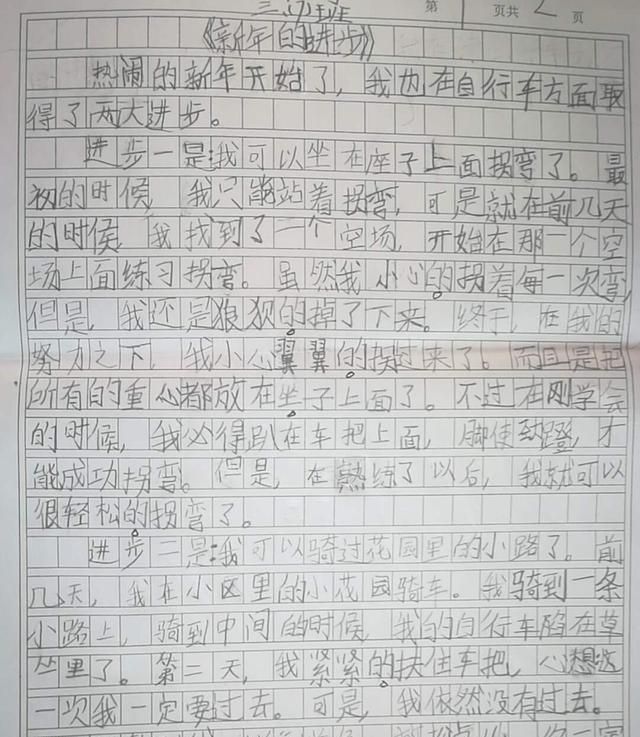 三(2)班 第1页共2页
《新年的进步》
热闹的新年开始了，我也在自行车方面取
得了两大进步。
进步一是：我可以坐在座子上面拐弯了。最
初的时候，我只能站着拐弯，可是就在前几天
的时候，我找到了一个空场，开始在那一个空
场上面练习拐弯。虽然我小心的拐着每一次弯，
但是，我还是狼狈的掉了下来。终于，在我的
努力之下，我小心翼翼的拐过来了。而且是把
所有的重心都放在坐子上面了。不过在刚学会
的时候，我必得趴在车把上面，脚使劲蹬，才
能成功拐弯。但是，在熟练了以后，我就可以
很轻松的拐弯了。
进步二是：我可以骑过花园里的小路了。前
几天，我在小区里的小花园骑车。我骑到一条
小路上，骑到中间的时候，我的自行车陷在草
丛里了。第二天，我紧紧的扶住车把，心想这
一次我一定要过去。可是，我依然没有过去。